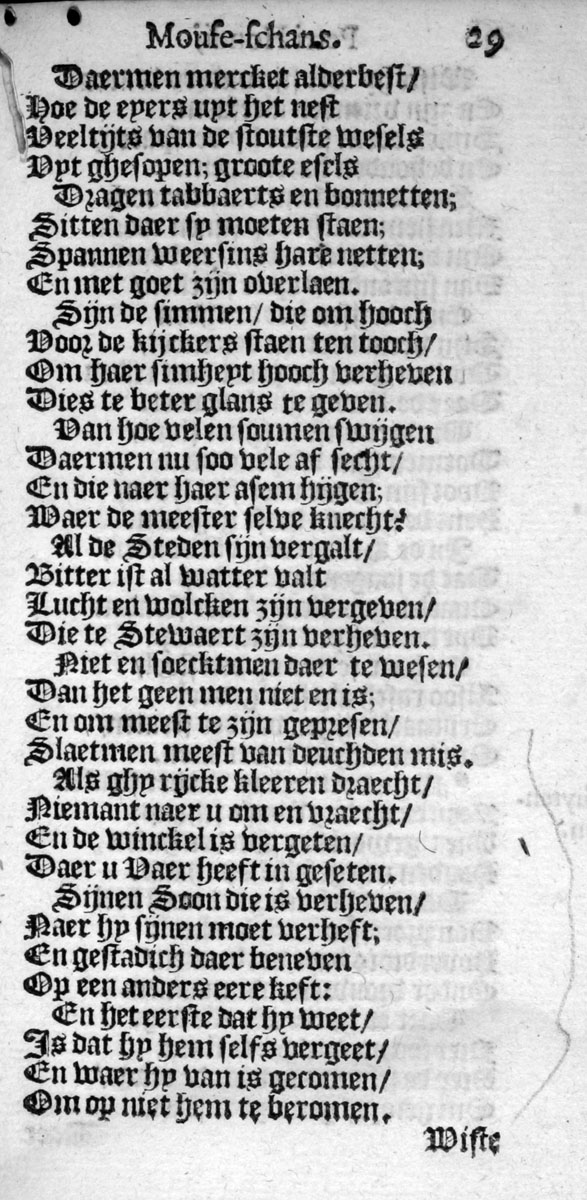 Moufe-schans. 29
Daermen mercket alderbest/
Hoe de eyers uyt het nest
Veeltijts van de stoutste wesels
Uyt ghesopen; groote esels
Dragen tabbaerts en bonnetten;
Sitten daer sy moeten staen;
Spannen weersins hare netten;
En met goet zijn overlaen.
Sijn de simmen/ die om hooch
Voor de kijckers staen ten tooch/
Om haer simheyt hooch verheven
Dies te beter glans te geven.
Van hoe velen soumen swijgen
Daermen nu soo vele af secht/
En die naer haer asem hijgen;
Waer de meester selve knecht?
Al de Steden sijn vergalt/
Bitter ist al watter valt
Lucht en wolcken zijn vergeven/
Die te Stewaert zijn verheven.
Niet en soecktmen daer te wesen/
Dan het geen men niet en is;
En om meest te zijn gepresen/
Slaetmen meest van deuchden mis.
Als ghy rijcke kleeren draecht/
Niemant naer u om en vraecht/
En de winckel is vergeten/
Daer u Vaer heeft in geseten.
Sijnen Soon die is verheven/
Naer hy sijnen moet verheft;
En gestadich daer beneven
Op een anders eere keft:
En het eerste dat hy weet/
Is dat hy hem selfs vergeet/
En waer hy van is gecomen/
Om op niet hem te beromen.
Wiste